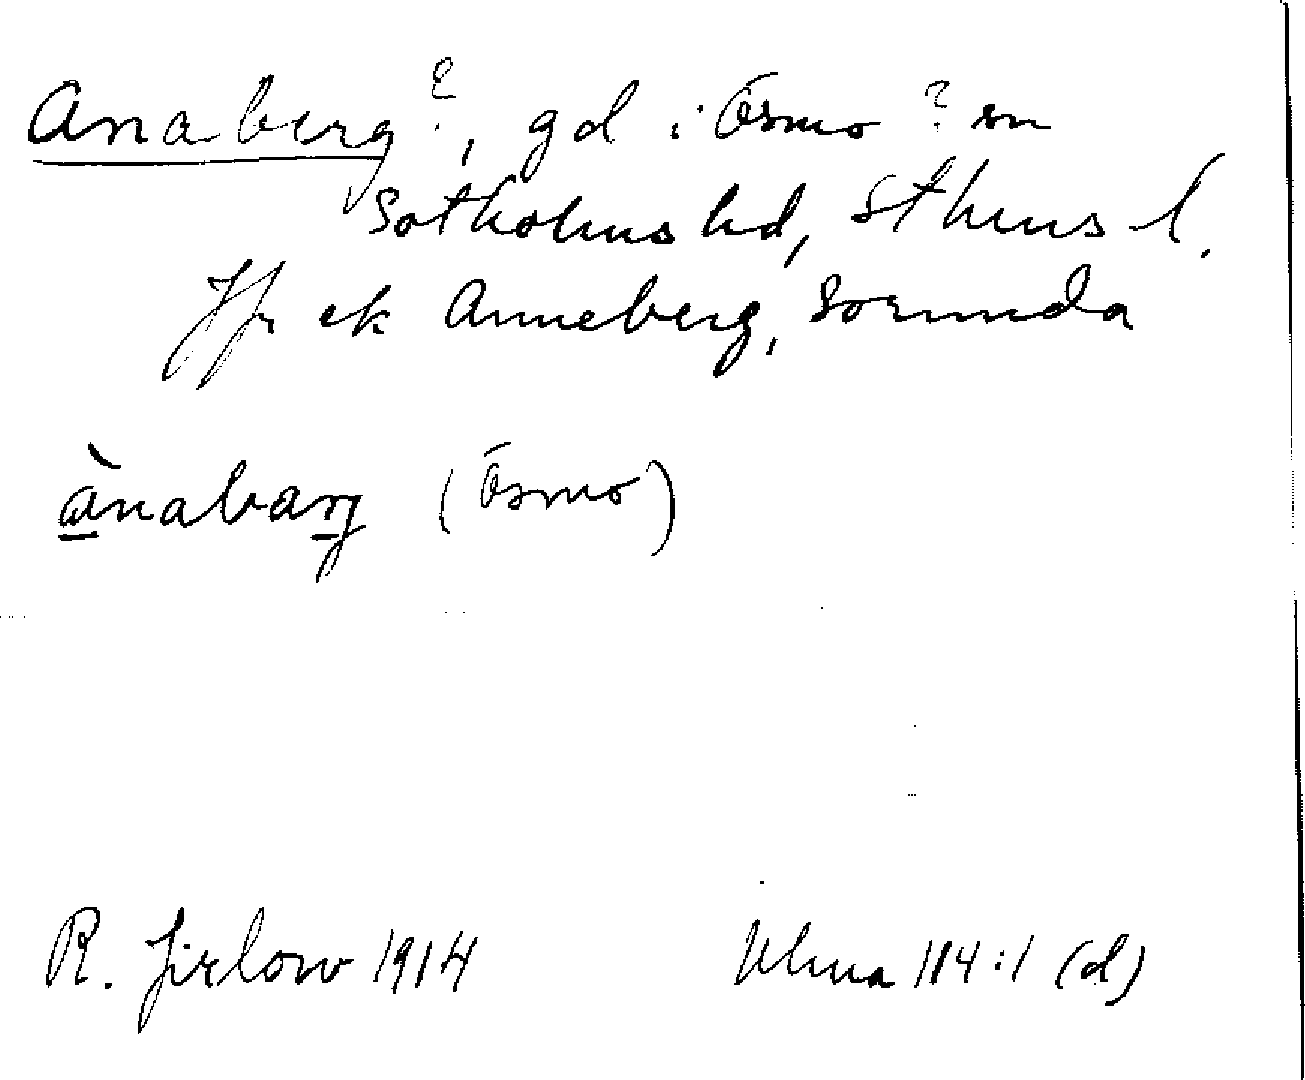 Anaberg?, gd i Ösmo? sn
Sotholms hd, Sthms l.
Jfr ek Anneberg, Sorunda
ànabarj (Ösmo)
R. Jirlow 1914 Ulma 114:1 (d)